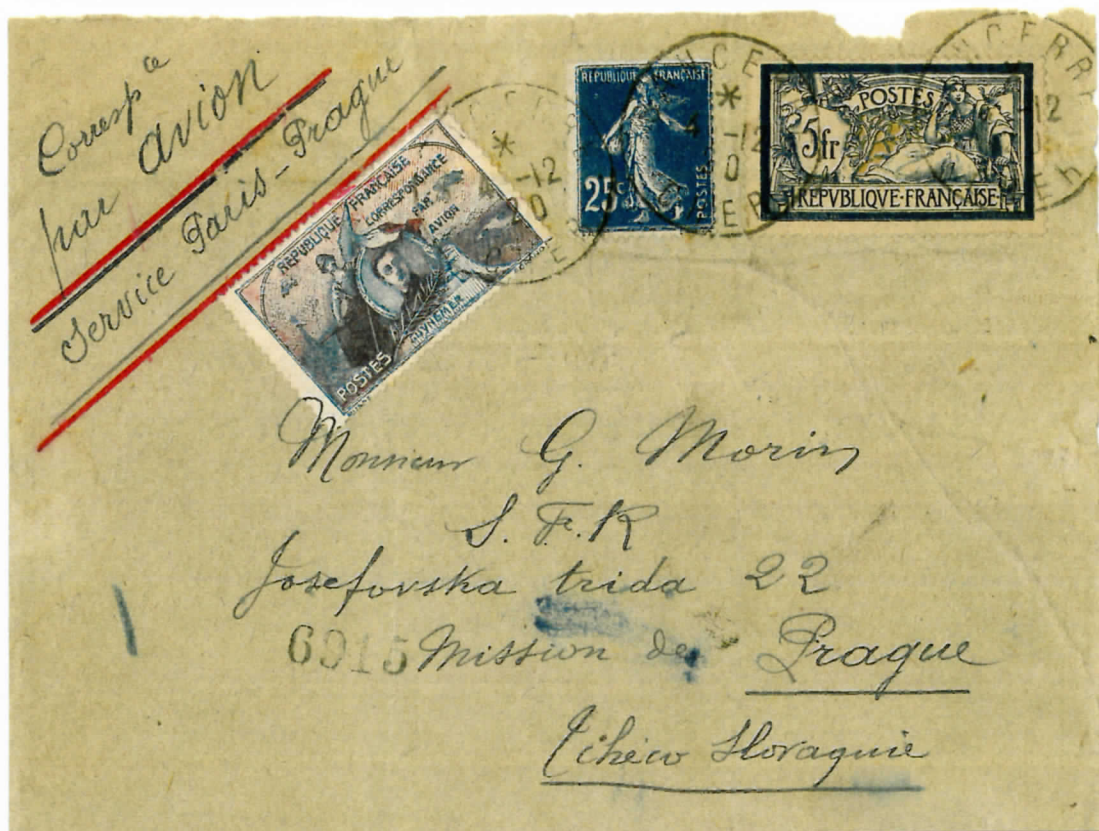 Corresp ce
par avion
Service Paris-Prague
REPUBLIQUE FRANÇAISE
CORRESPONDANCE
PAR
AVION
GUYNEMER
POSTES
REPUBLIQUE FRANÇAISE
25c
POSTES
POSTES
5fr
REPVBLIQVE·FRANÇAISE
4 -12
20
Monsieur G. Morin
S. F. R
Josefovska trida 22
6915 Mission de Prague
Tchéco Slovaquie